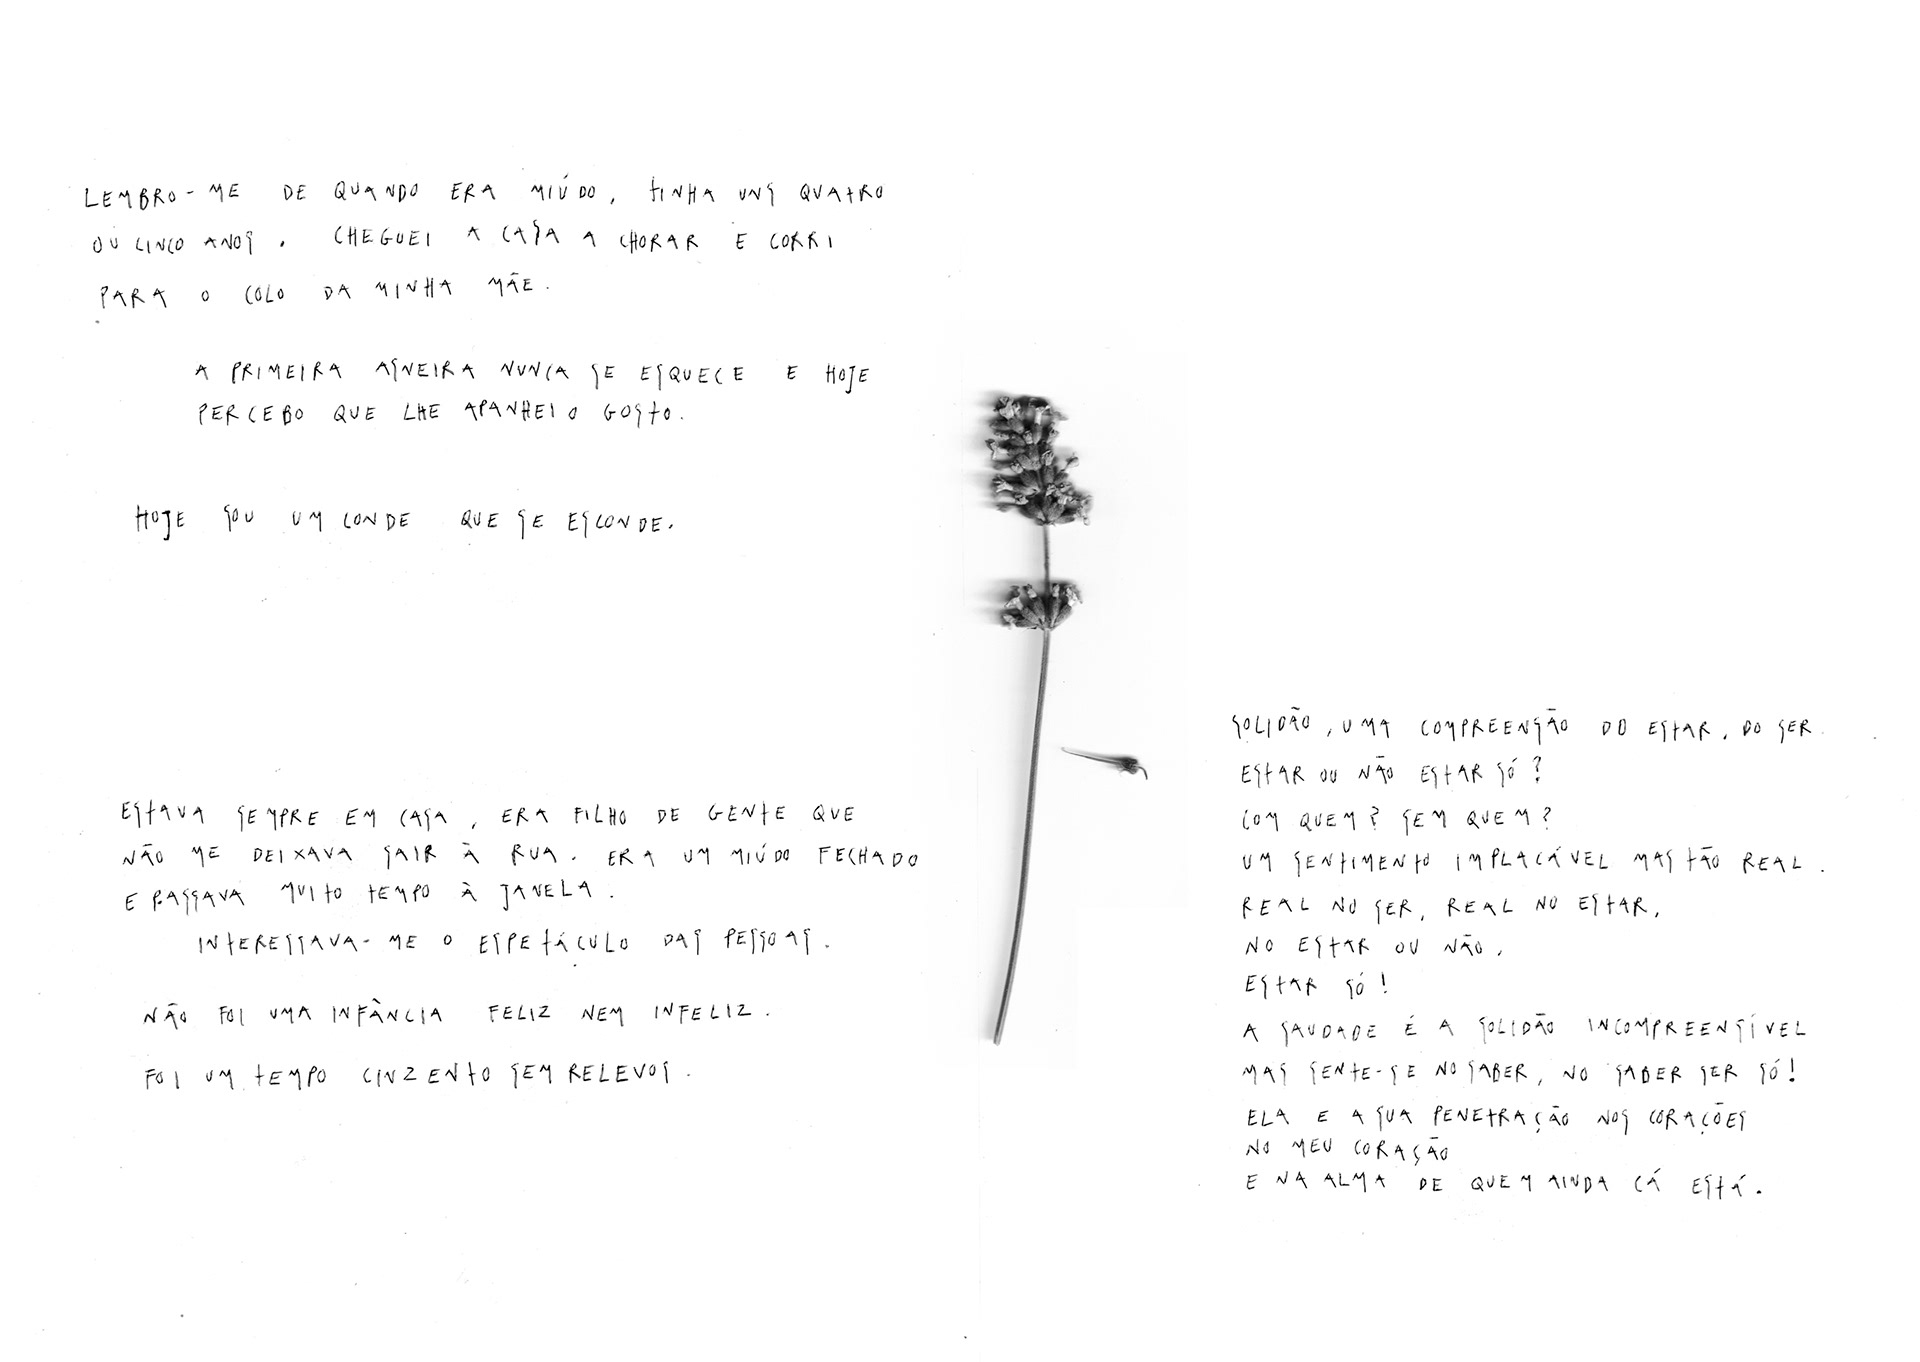 LEMBRO-ME DE QUANDO ERA MIÚDO, TINHA UNS QUATRO
OU CINCO ANOS. CHEGUEI A CASA A CHORAR E CORRI
PARA O COLO DA MINHA MÃE.
A PRIMEIRA ASNEIRA NUNCA SE ESQUECE E HOJE
PERCEBO QUE LHE APANHEI O GOSTO.
HOJE SOU UM CONDE QUE SE ESCONDE.
ESTAVA SEMPRE EM CASA, ERA FILHO DE GENTE QUE
NÃO ME DEIXAVA SAIR À RUA. ERA UM MIÚDO FECHADO
E PASSAVA MUITO TEMPO À JANELA.
INTERESSAVA-ME O ESPETÁCULO DAS PESSOAS.
NÃO FOI UMA INFÀNCIA FELIZ NEM INFELIZ.
FOI UM TEMPO CINZENTO SEM RELEVOS.
SOLIDÃO, UMA COMPREENSÃO DO ESTAR, DO SER.
ESTAR OU NÃO ESTAR SÓ?
COM QUEM? SEM QUEM?
UM SENTIMENTO IMPLACÁVEL MAS TÃO REAL.
REAL NO SER, REAL NO ESTAR,
NO ESTAR OU NÃO,
ESTAR SÓ!
A SAUDADE É A SOLIDÃO INCOMPREENSÍVEL
MAS SENTE-SE NO SABER, NO SABER SER SÓ!
ELA E A SUA PENETRAÇÃO NOS CORAÇÕES
NO MEU CORAÇÃO
E NA ALMA DE QUEM AINDA CÁ ESTÁ.